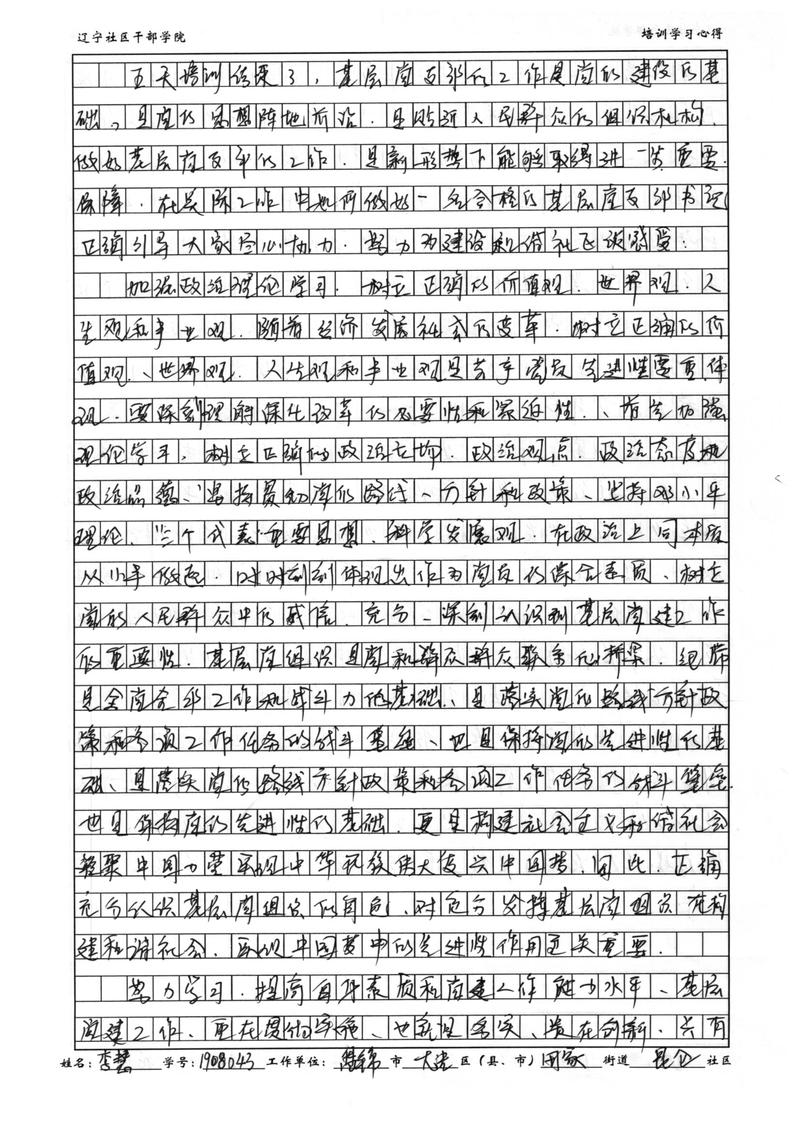 辽宁社区干部学院
培训学习心得
五天培训结束了,基层党支部的工作是党的建设的基
础。是党的思想阵地前沿。是贴近人民群众的组织机构。
做好基层党支部的工作。是新形势下能够取得进一步重要
保障。在实际工作中如何做好一名合格的基层党支部书记
正确引导大家尽心协力。努力为建设和谐社区谈感受:
加强政治理论学习。树立正确的价值观。世界观。人
生观和事业观。随着经济发展社会的变革。树立正确的价
值观、世界观。人生观和事业观是共产党员先进性重要体
现。要深刻理解深化改革的必要性和紧迫性、首先加强
理论学习。树立正确的政治立场。政治观点。政治态度和
政治品德、坚持贯彻党的路线、方针和政策、坚持邓小平
理论、"三个代表"重要思想、科学发展观。在政治上同
从小事做起。时时刻刻体现出作为党员的综合素质、树立
党的人民群众中的威信。充分、深刻认识到基层党建工作
的重要性。基层党组织是党和群众群众联系的桥梁。纽带
是全党全部工作和战斗力的基础、是落实党的路线方针政
策和各项工作任务的战斗堡垒、也是保持党的先进性的基
础、是落实党的路线方针政策和各项工作任务的战斗堡垒.
也是保持党的先进性的基础。更是构建社会主义和谐社会
凝聚中国力量实现中华民族伟大复兴中国梦。因此。正确
充分认识基层党组织的角色、对充分发挥基层党组织在构
建和谐社会、实现中国梦中的先进性作用至关重要。
努力学习。提高自身素质和党建工作能力水平、基层
党建工作。重在具体实施、也就是务实、贵在创新。只有
姓名:李慧 学号:1908043 工作单位: 市 区(县、市) 街道 社区